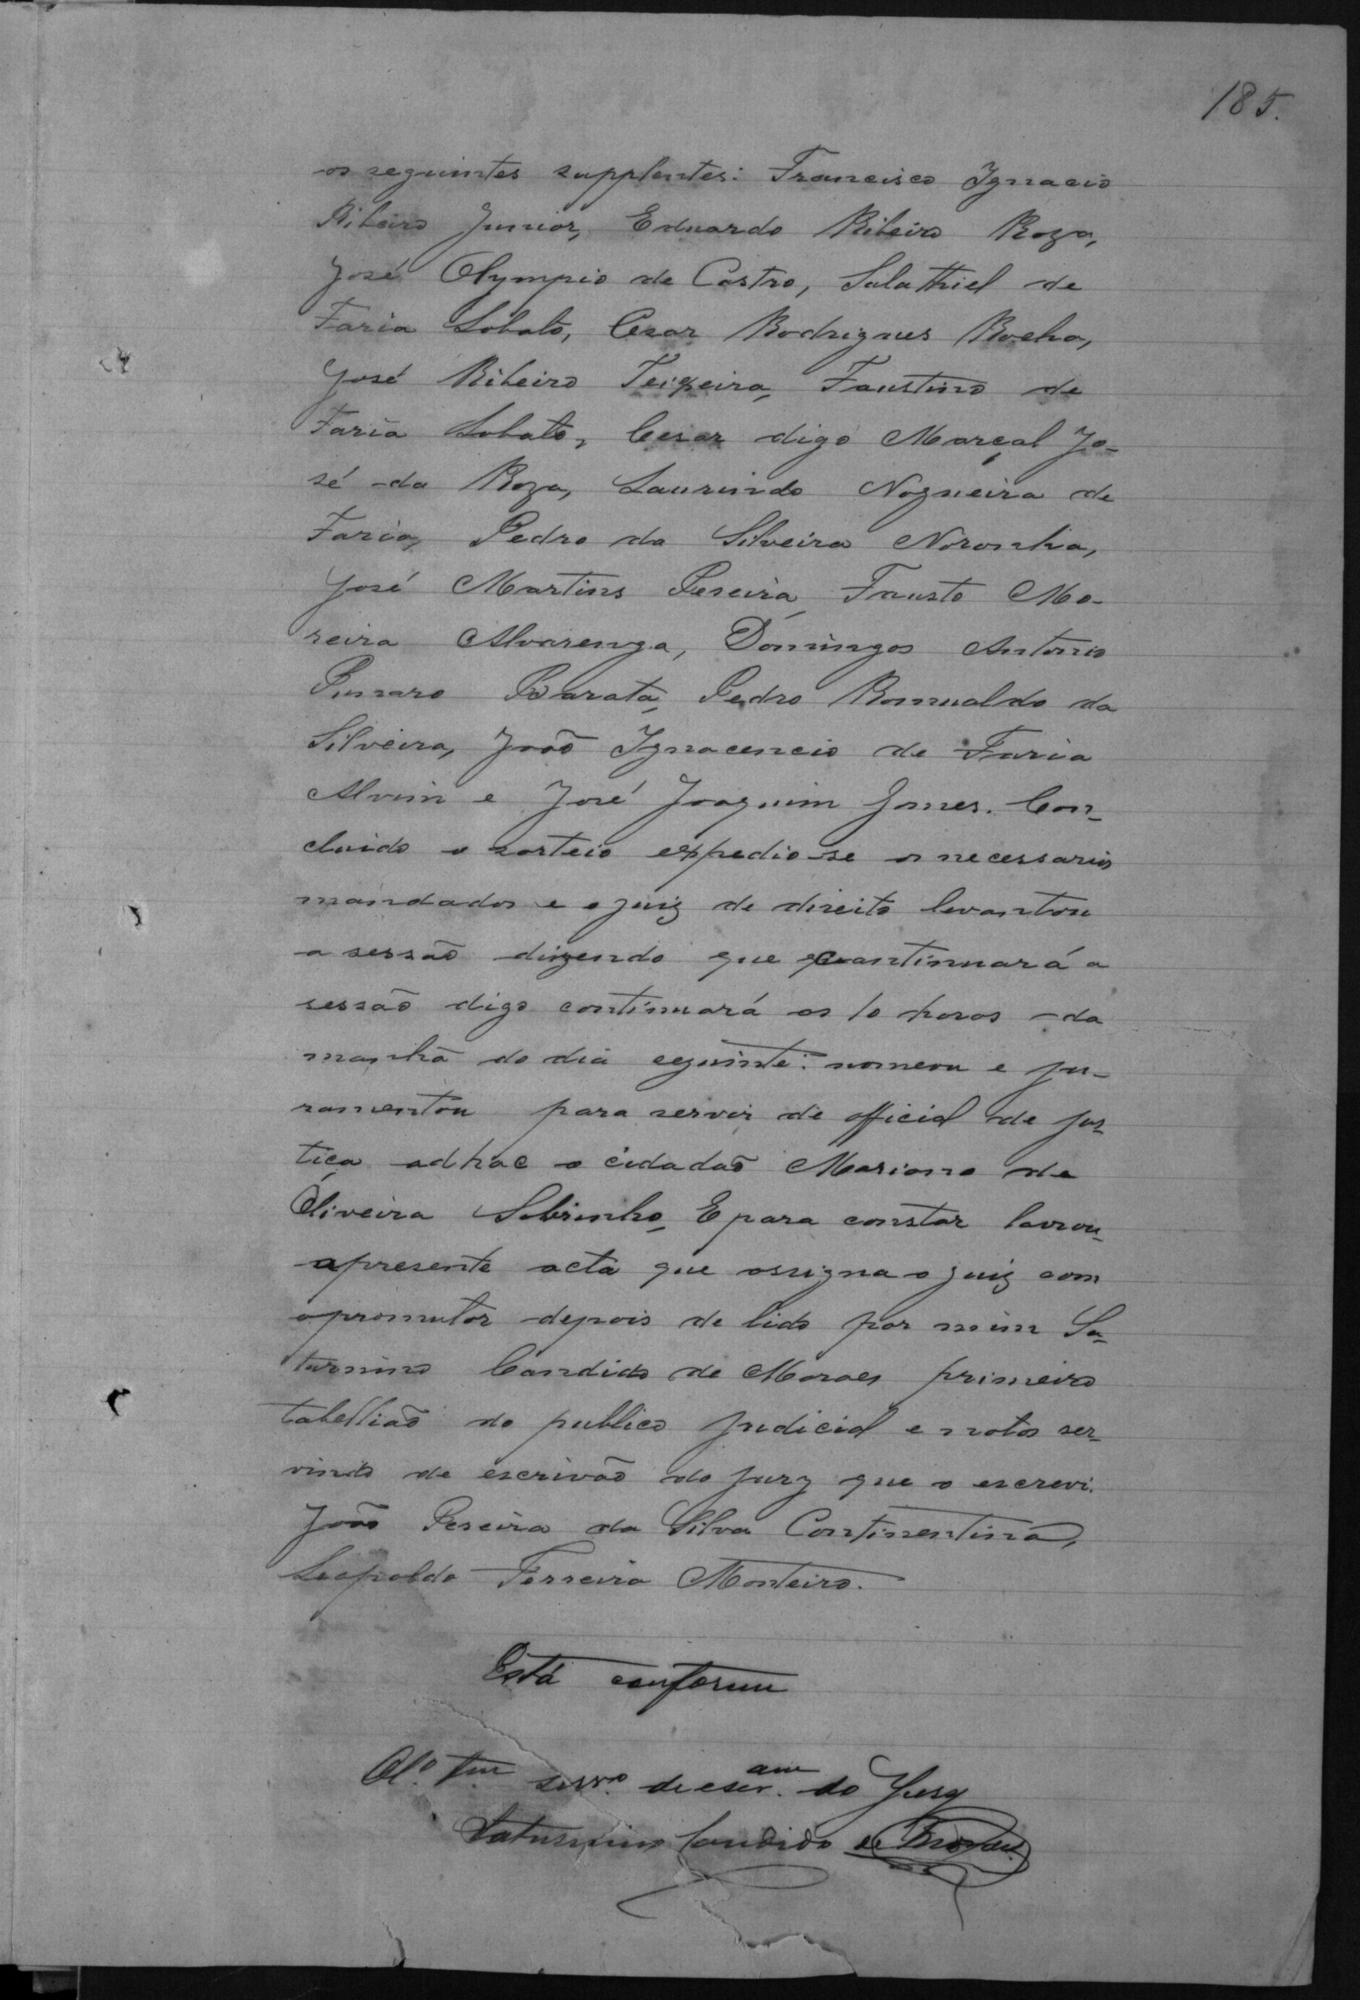 185.
os seguintes supplentes: Francisco Ignacio
Ribeiro Junior, Eduardo Ribeiro Roza,
José Olympio de Castro, Salathiel de
Faria Lobato, Cesar Rodrigues Rocha,
José Ribeiro Teixeira, Faustino de
Faria Lobato, Cesar digo Marçal Jo-
sé da Roza, Laurindo Nogueira de
Faria, Pedro da Silveira Noronha,
José Martins Pereira, Fausto Mo-
reira Alvarenga, Domingos Antonio
Barata, Pedro Romualdo da
Silveira, João Ignacencio de Faria
Alvim e José Joaquim Gomes. Con-
cluido o sorteio expedio-se os necessarios
mandados e o juiz de direito levantou
a sessão dizendo que continuará a
sessão digo continuará as 10 horas da
manhã do dia seguinte: nomeou e ju-
ramentou para servir de official de jus-
tiça adhac o cidadão Mariano de
Oliveira Sobrinho, E para constar lavrou-
a presente acta que assigna o juiz com
o promutor depois de lido por mim Sa-
turnino Candido de Moraes primeiro
tabellião do publico judicial e notas ser-
vindo de escrivão do jury que o escrevi.
João Pereira da Silva Continentino,
Leopoldo Ferreira Monteiro.
Está conforme
serv.º de escr.am do Jury
Saturnino Candido de Moraes